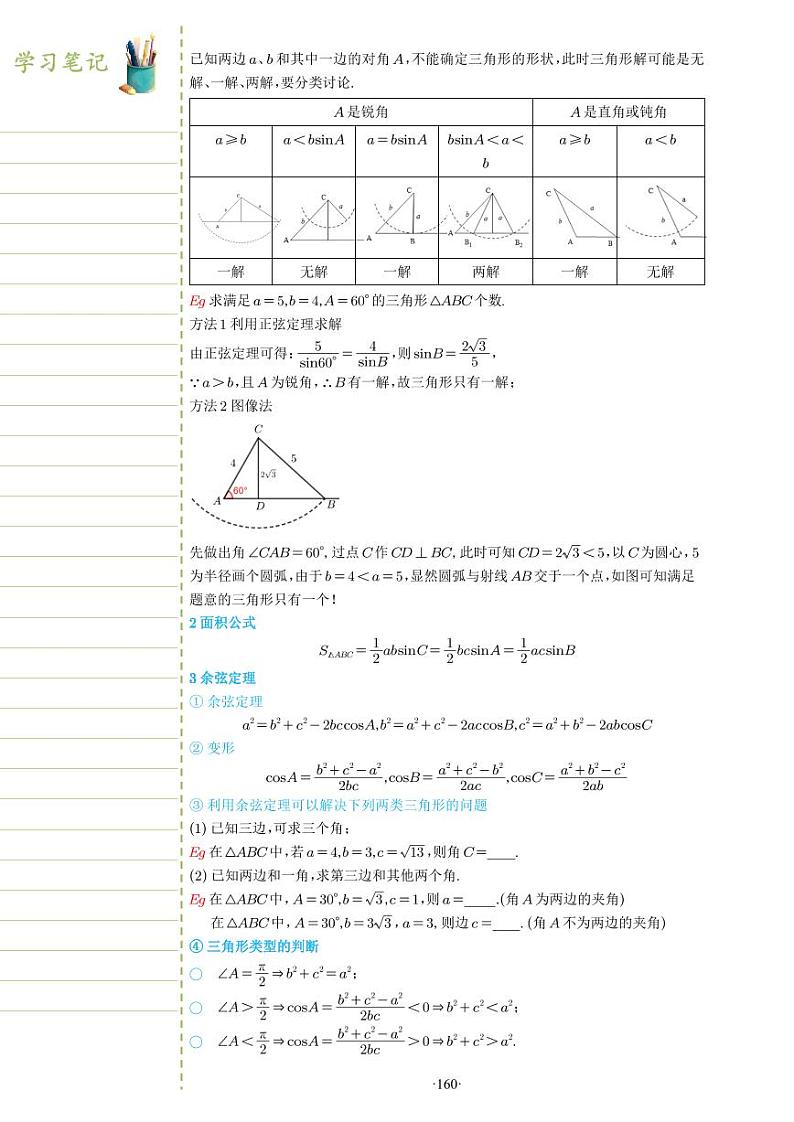 学习笔记
已知两边a、b和其中一边的对角A,不能确定三角形的形状,此时三角形解可能是无
解、一解、两解,要分类讨论.
A是锐角 A是直角或钝角
a⩾b a<bsinA a=bsinA bsinA<a<b a⩾b a<b
C A
C b a A
C b a A B
C b a a A B₁ B₂
C b a A B
C a b A
一解 无解 一解 两解 一解 无解
Eg 求满足a=5,b=4,A=60°的三角形△ABC个数.
方法1 利用正弦定理求解
由正弦定理可得:5/sin60°=4/sinB,则sinB=2√3/5,
∵a>b,且A为锐角,∴B有一解,故三角形只有一解;
方法2 图像法
C
4 5
2√3
60°
A D B
先做出角∠CAB=60°,过点C作CD⊥BC,此时可知CD=2√3<5,以C为圆心,5
为半径画个圆弧,由于b=4<a=5,显然圆弧与射线AB交于一个点,如图可知满足
题意的三角形只有一个!
2 面积公式
S△ABC=1/2absinC=1/2bcsinA=1/2acsinB
3 余弦定理
① 余弦定理
a²=b²+c²-2bccosA,b²=a²+c²-2accosB,c²=a²+b²-2abcosC
② 变形
cosA=(b²+c²-a²)/2bc,cosB=(a²+c²-b²)/2ac,cosC=(a²+b²-c²)/2ab
③ 利用余弦定理可以解决下列两类三角形的问题
(1) 已知三边,可求三个角;
Eg 在△ABC中,若a=4,b=3,c=√13,则角C=____.
(2) 已知两边和一角,求第三边和其他两个角.
Eg 在△ABC中,A=30°,b=√3,c=1,则a=____.(角A为两边的夹角)
在△ABC中,A=30°,b=3√3,a=3,则边c=____.(角A不为两边的夹角)
④ 三角形类型的判断
○ ∠A=π/2⇒b²+c²=a²;
○ ∠A>π/2⇒cosA=(b²+c²-a²)/2bc<0⇒b²+c²<a²;
○ ∠A<π/2⇒cosA=(b²+c²-a²)/2bc>0⇒b²+c²>a².
·160·